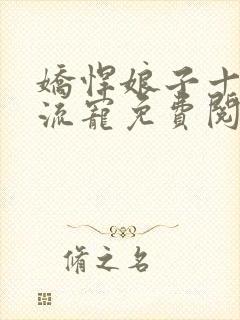 嬌悍娘子十
流寵免費閱
脩之名